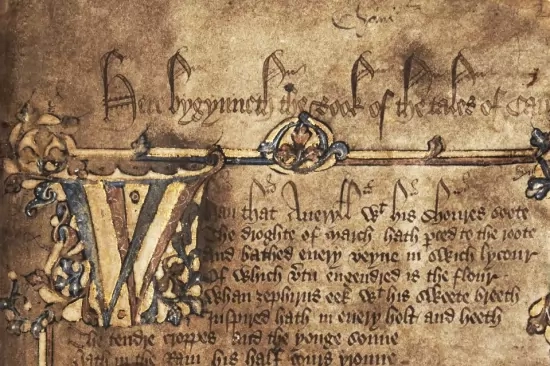 Here bygynneth the Book of the tales of Cau
Whan that Aueryll wt his shoures soote
The droghte of march hath pced to the roote
And bathed euery veyne in swich lycour
Of which vtu engendred is the flour
Whan zephirus eek wt his sweete breeth
Inspired hath in euery holt and heeth
The tendre croppes and the yonge sonne
Hath in the Ram his half cours yronne